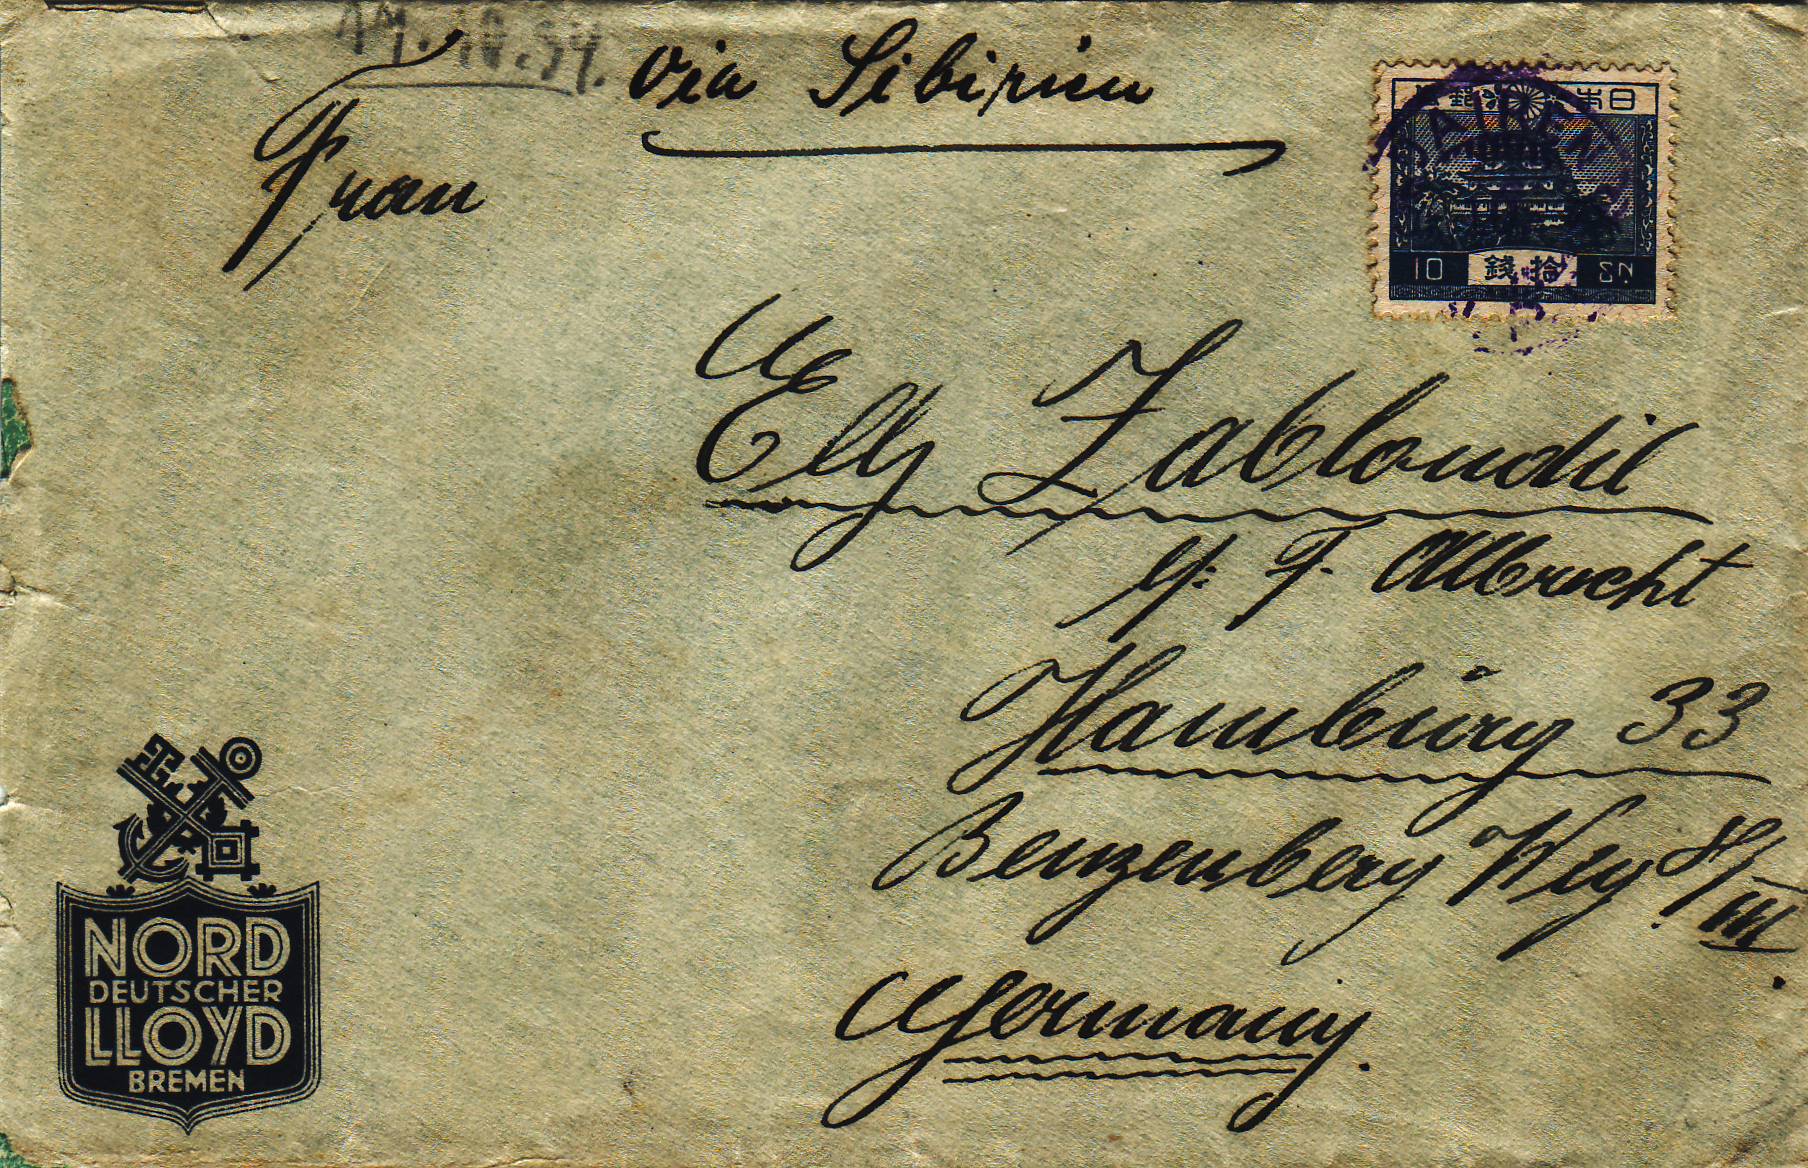 19.10.34.
via Sibirien
Frau
日本郵便
DAIREN
10 拾錢 SN.
Elly Zabloudil
p. F. Albrecht
Hamburg 33
Benzenberg Weg 8/III.
Germany.
NORD
DEUTSCHER
LLOYD
BREMEN